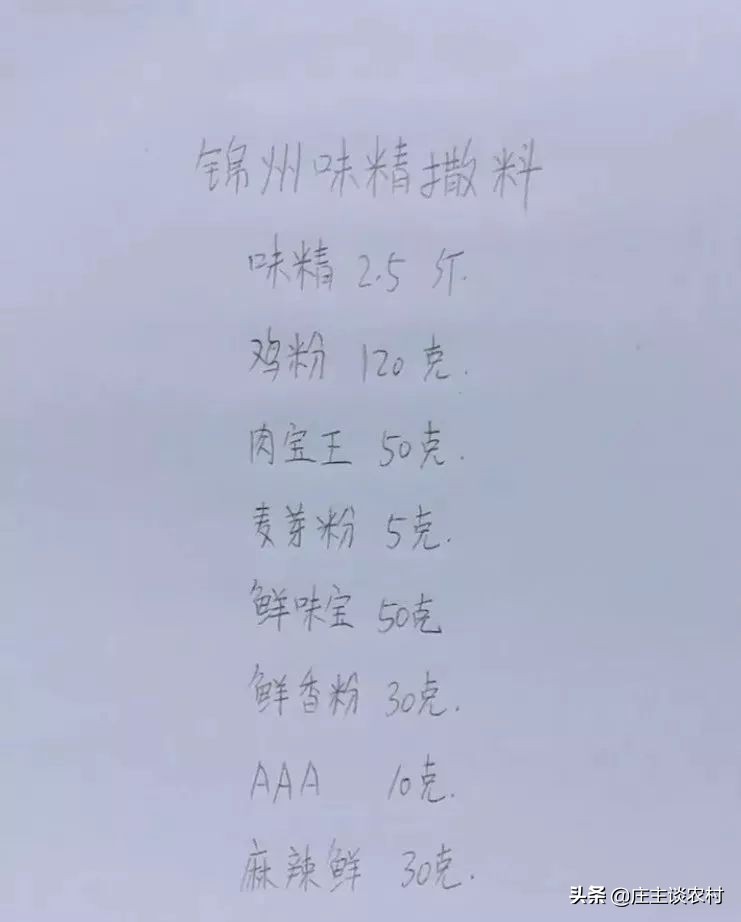 锦州味精撒料
味精 2.5 斤.
鸡粉 120克.
肉宝王 50克.
麦芽粉 5克.
鲜味宝 50克
鲜香粉 30克.
AAA 10克.
麻辣鲜 30克.
头条 @庄主谈农村